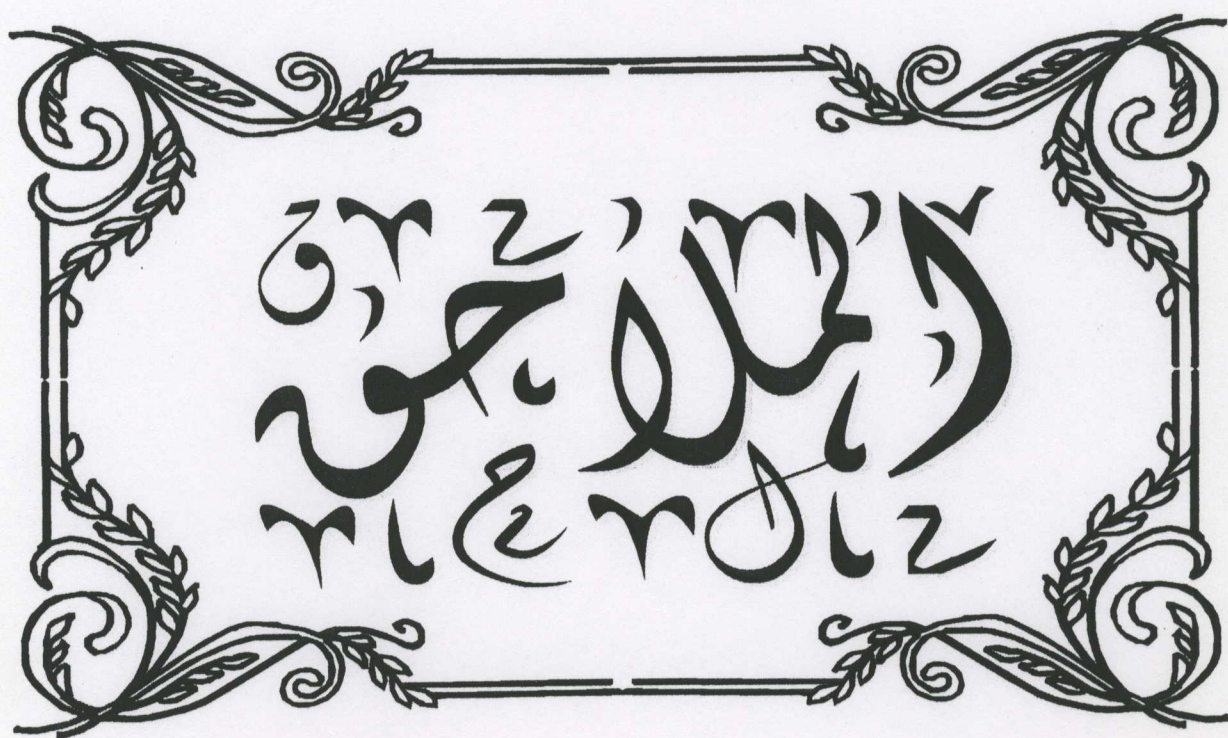 الملاحق